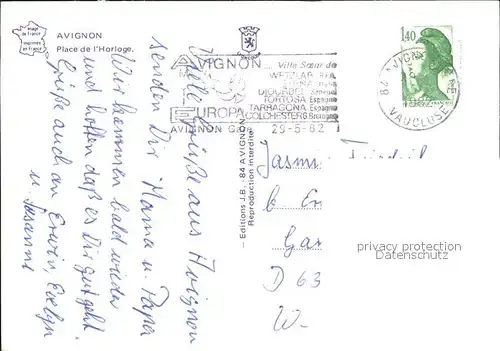 image de france
imprimée en france
AVIGNON
Place de l'Horloge.
Viele Grüße aus Avignon
senden Dir Mama u. Papa
Wir kommen bald wieder
und hoffen daß es Dir gut geht.
Grüße auch an Erwin, Evelyn
u. Susanne
– Editions J.B. - 84 AVIGNON –
Reproduction interdite
AVIGNON... Ville Sœur de
WETZLAR RFA
Italie
DIOURBEL Sénégal
TORTOSA Espagne
TARRAGONA Espagne
EUROPA COLCHESTER G. Bretagne
AVIGNON Gare 29-5-82
1,40
AVIGNON GARE
VAUCLUSE
Jasm
b
Gar
D 63
W-
privacy protection
watermark